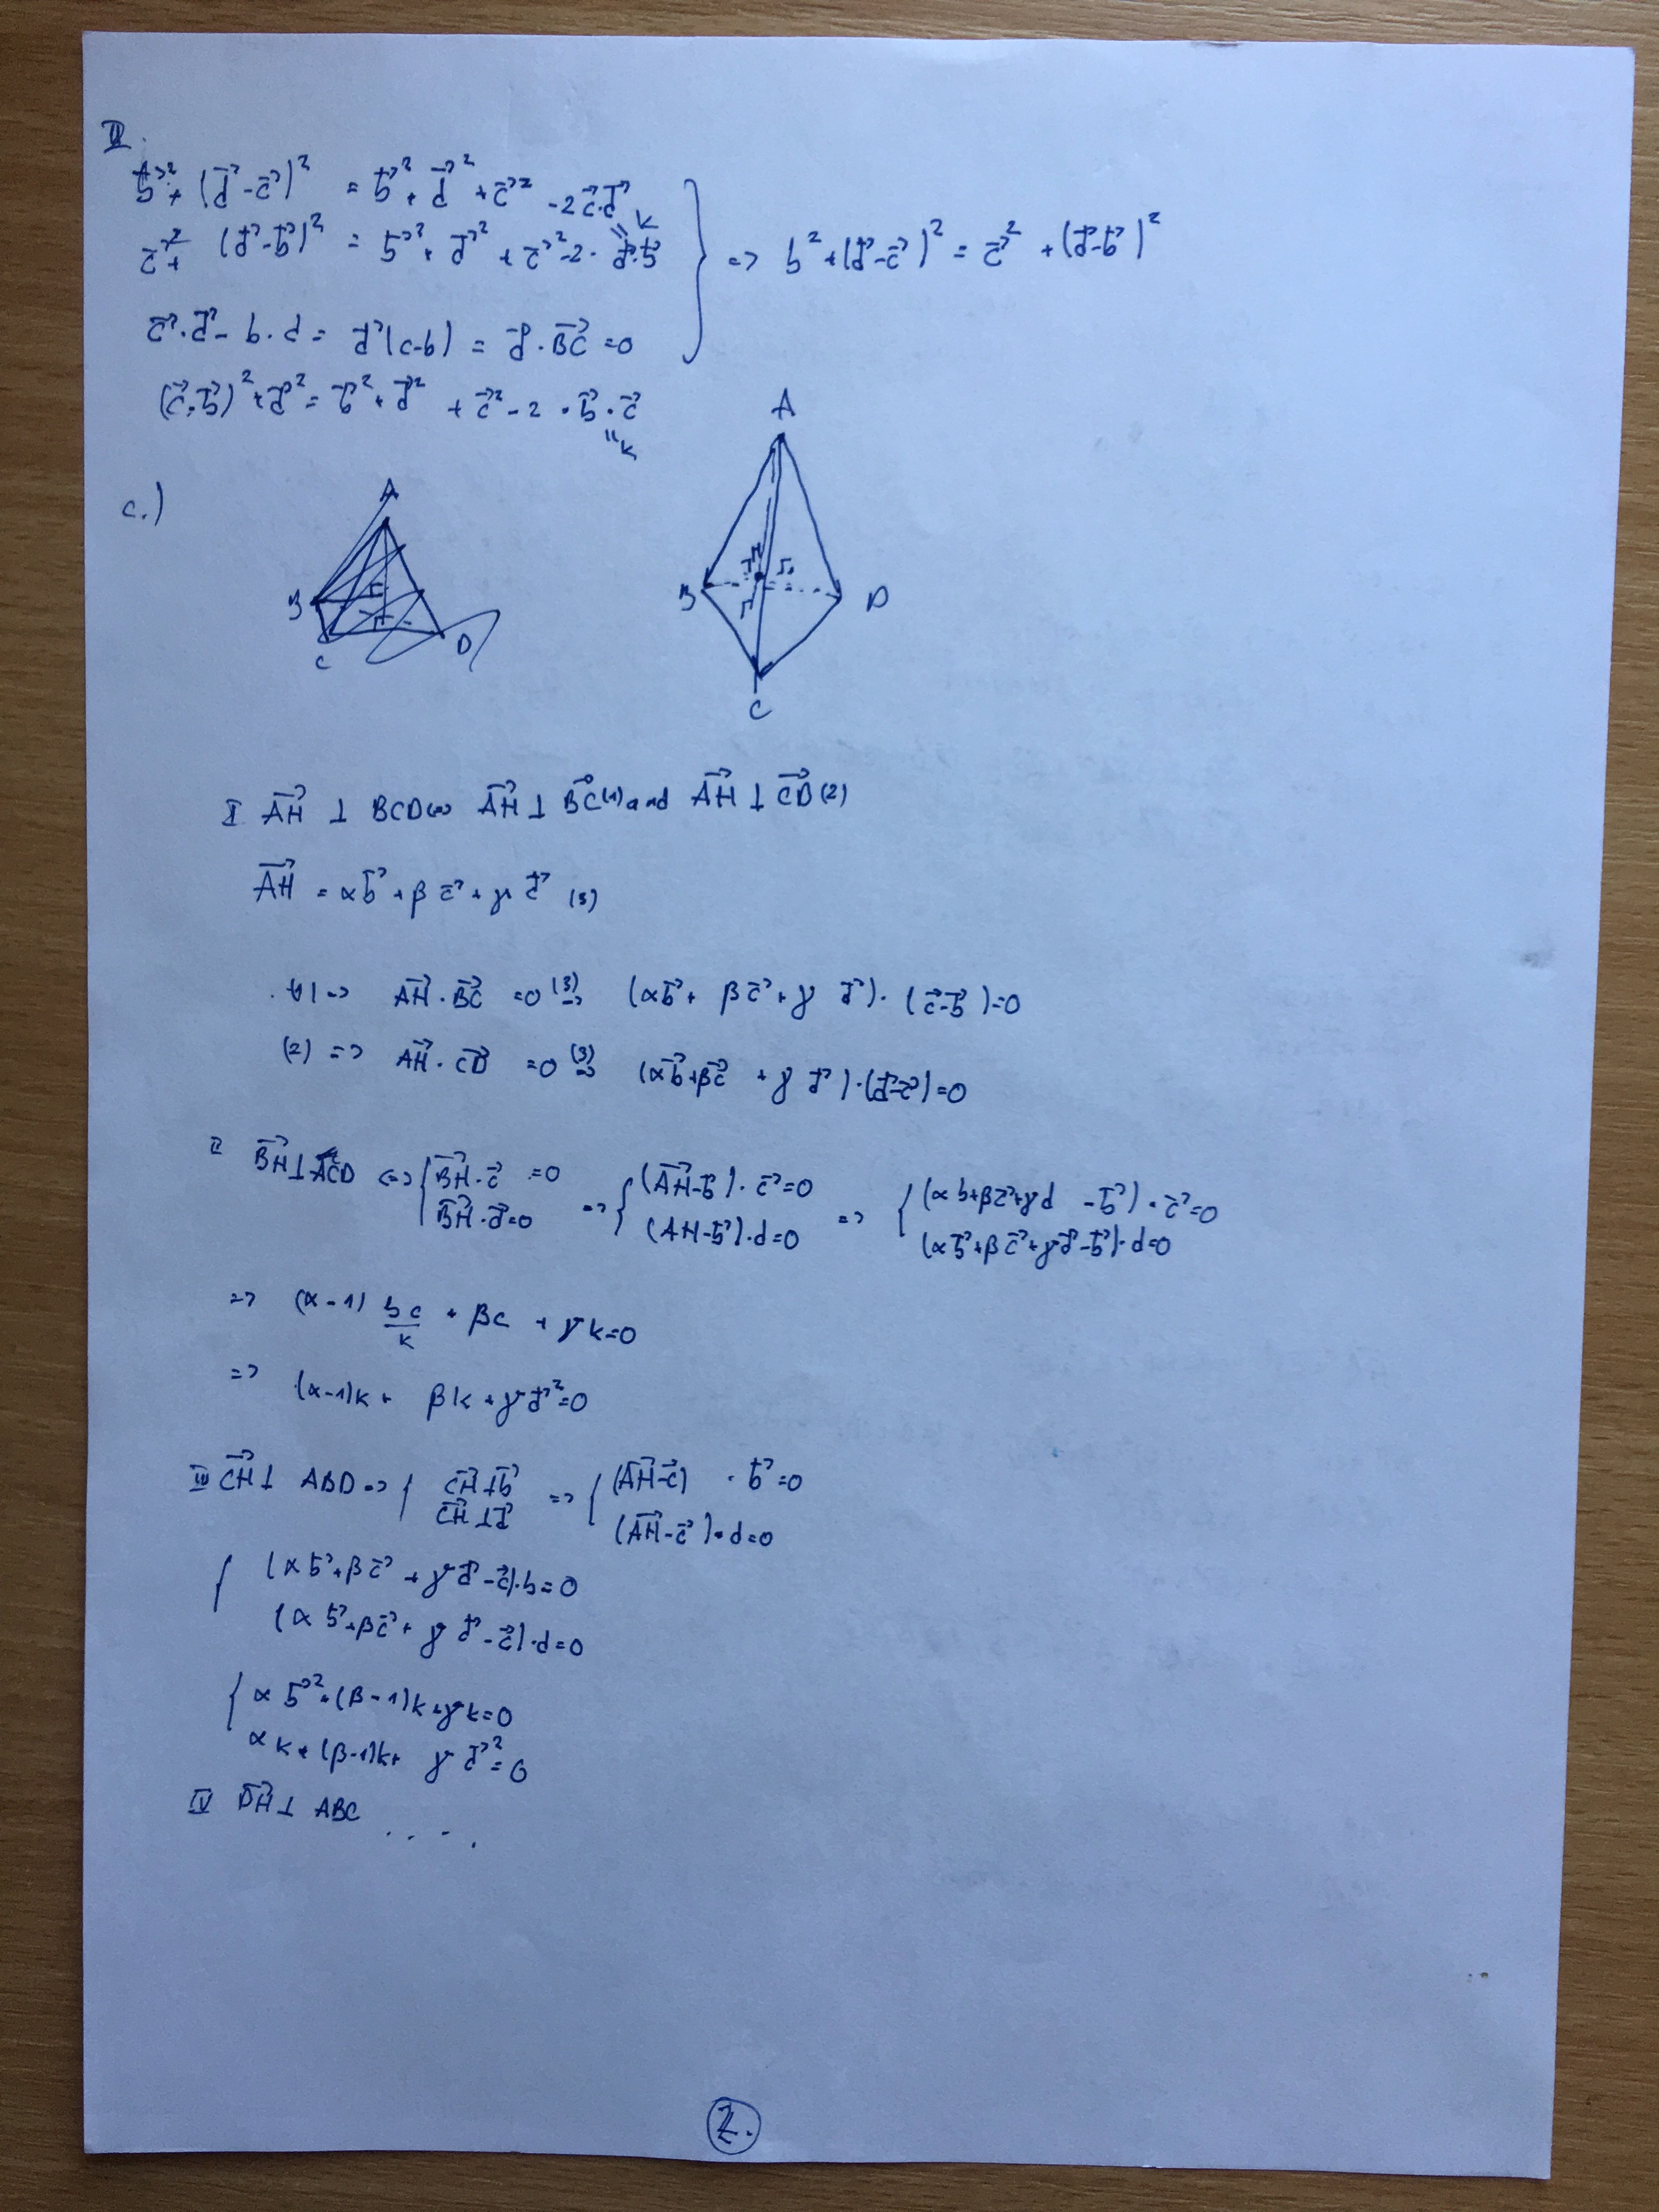 II.
b⃗² + (d⃗ - c⃗)² = b⃗² + d⃗² + c⃗² - 2c⃗·d⃗
= k
c⃗² + (d⃗ - b⃗)² = b⃗² + d⃗² + c⃗² - 2· d⃗·b⃗
=> b² + (d⃗ - c⃗)² = c⃗² + (d⃗ - b⃗)²
c⃗·d⃗ - b·d = d⃗(c-b) = d⃗·BC⃗ = 0
(c⃗-b⃗)² + d⃗² = b⃗² + d⃗² + c⃗² - 2·b⃗·c⃗
= k
c.)
A
B
C
D
A
H
B
D
C
I AH⃗ ⊥ BCD <=> AH⃗ ⊥ BC⃗ (1) and AH⃗ ⊥ CD⃗ (2)
AH⃗ = αb⃗ + βc⃗ + γd⃗ (3)
(1) => AH⃗·BC⃗ = 0 (3)=> (αb⃗ + βc⃗ + γd⃗)·(c⃗-b⃗) = 0
(2) => AH⃗·CD⃗ = 0 (3)=> (αb⃗ + βc⃗ + γd⃗)·(d⃗-c⃗) = 0
II BH⃗ ⊥ ACD <=> { BH⃗·c⃗ = 0 => { (AH⃗-b⃗)·c⃗ = 0 => { (αb + βc⃗ + γd - b⃗)·c⃗ = 0
BH⃗·d⃗ = 0 (AH-b⃗)·d = 0 (αb⃗ + βc⃗ + γd⃗ - b⃗)·d = 0
=> (α-1) bc + βc + γk = 0
k
=> (α-1)k + βk + γd⃗² = 0
III CH⃗ ⊥ ABD => { CH⃗ ⊥ b⃗ => { (AH⃗-c⃗)·b⃗ = 0
CH⃗ ⊥ d⃗ (AH⃗-c⃗)·d = 0
{ (αb⃗ + βc⃗ + γd⃗ - c⃗)·b = 0
(αb⃗ + βc⃗ + γd⃗ - c⃗)·d = 0
{ αb⃗² + (β-1)k + γk = 0
αk + (β-1)k + γd⃗² = 0
IV DH⃗ ⊥ ABC ....
2.